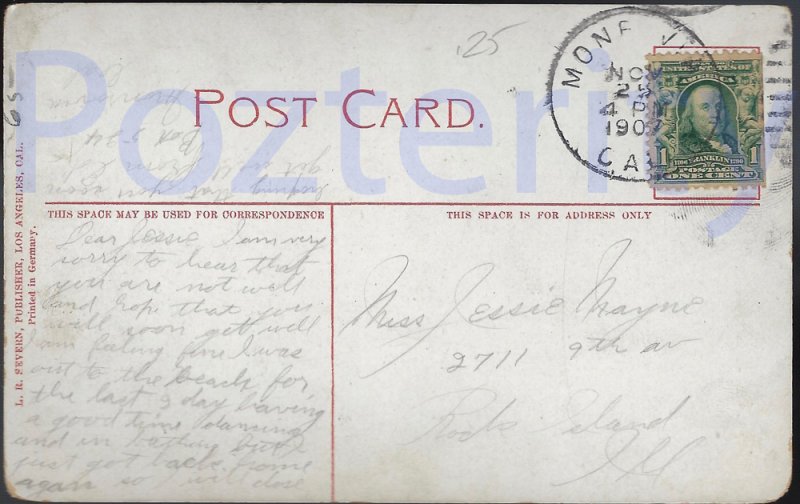 .25
65-
POST CARD.
MON
NOV
25
4 PM
1907
CAL
UNITED STATES OF
AMERICA
1 FRANKLIN 1
POSTAGE
ONE CENT
Pozteri
THIS SPACE MAY BE USED FOR CORRESPONDENCE
THIS SPACE IS FOR ADDRESS ONLY
L. R. SEVERN, PUBLISHER, LOS ANGELES, CAL.
Printed in Germany.
Dear Jessie I am very
sorry to hear that
you are not well
and hope that you
will soon get well
I am feeling fine I was
out to the beach for
the last 3 day having
a good time dancing
and in bathing but I
just got back home
again so will close
hoping that you again
get well
Box 524
Monrovia
Miss Jessie Mayne
2711 9th av
Rock Island
Ill